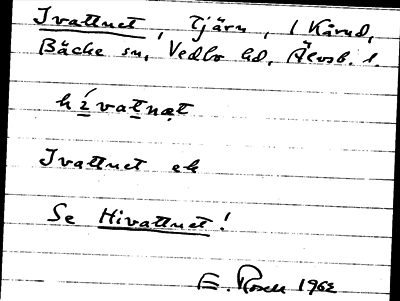 Ivattnet, Tjärn, I Kårud,
Bäcke sn, Vedbo hd, Älvsb. l.
hívatnət
Ivattnet ek
Se Hivattnet!
E. Rosell 1962